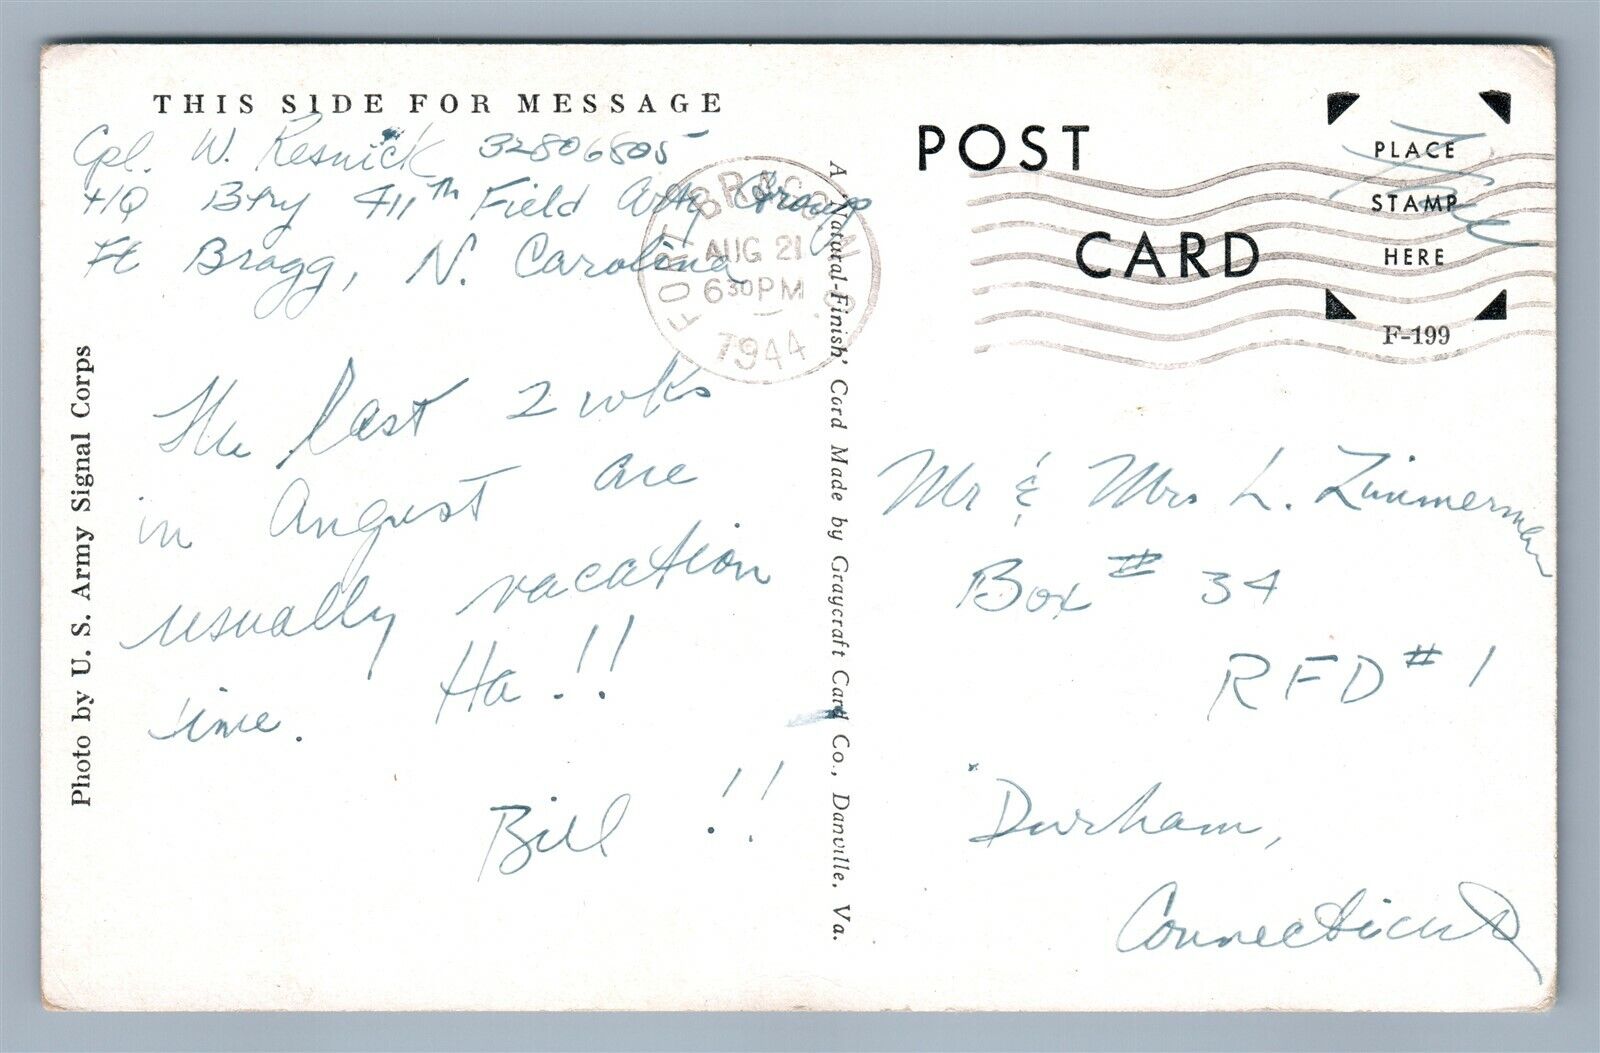 THIS SIDE FOR MESSAGE
Cpl. W. Resnick 32806805
HQ Btry 411th Field Arty Group
Ft Bragg, N. Carolina
FORT BRAGG N.C.
AUG 21
630PM
1944
The last 2 wks
in August are
usually vacation
time. Ha!!
Bill !!
Photo by U. S. Army Signal Corps
A 'Natural-Finish' Card Made by Graycraft Card Co., Danville, Va.
POST
CARD
PLACE
STAMP
HERE
F-199
Free
Mr & Mrs L. Zimmerman
Box # 34
RFD # 1
Durham,
Connecticut